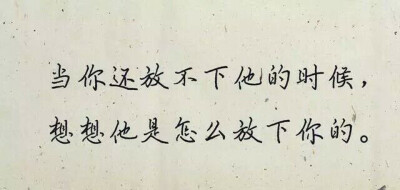 当你还放不下他的时候，
想想他是怎么放下你的。